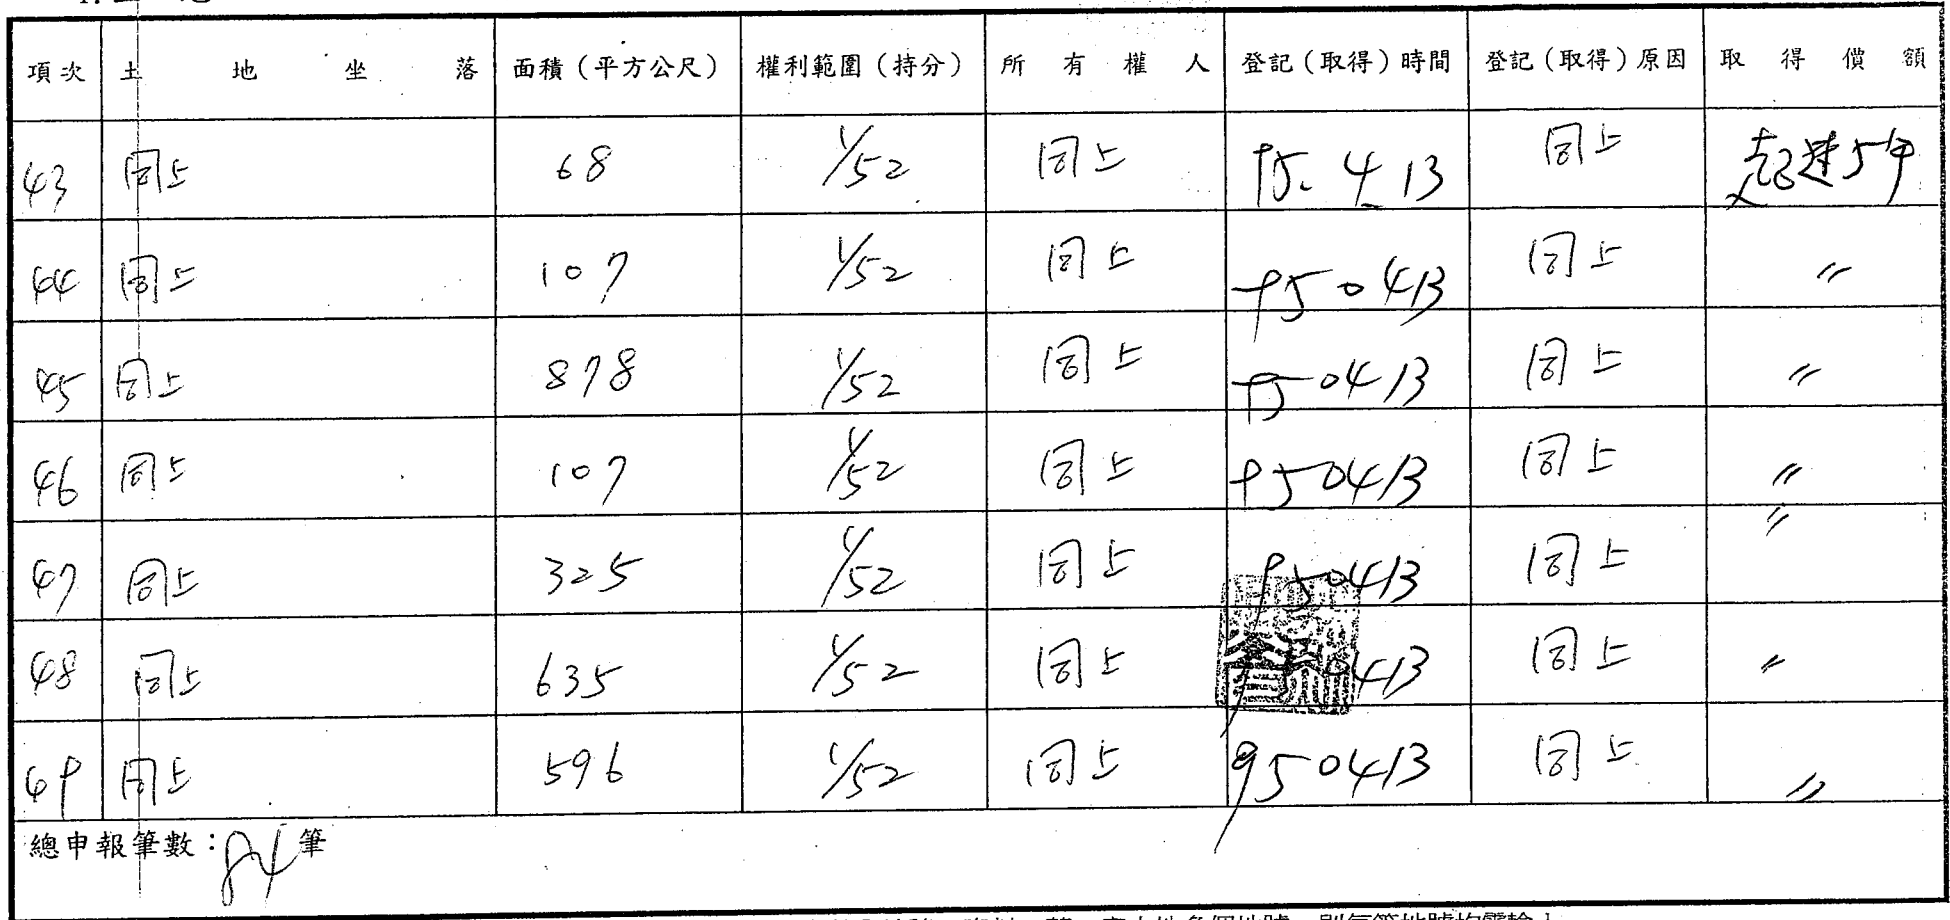 項次 土地坐落 面積（平方公尺） 權利範圍（持分） 所有權人 登記（取得）時間 登記（取得）原因 取得價額
43 同上 68 1/52 同上 95. 4 13 同上 超過5年
44 同上 107 1/52 同上 950413 同上 〃
45 同上 878 1/52 同上 950413 同上 〃
46 同上 107 1/52 同上 950413 同上 〃
47 同上 325 1/52 同上 950413 同上 〃
48 同上 635 1/52 同上 413 同上 〃
49 同上 596 1/52 同上 950413 同上 〃
總申報筆數：84筆